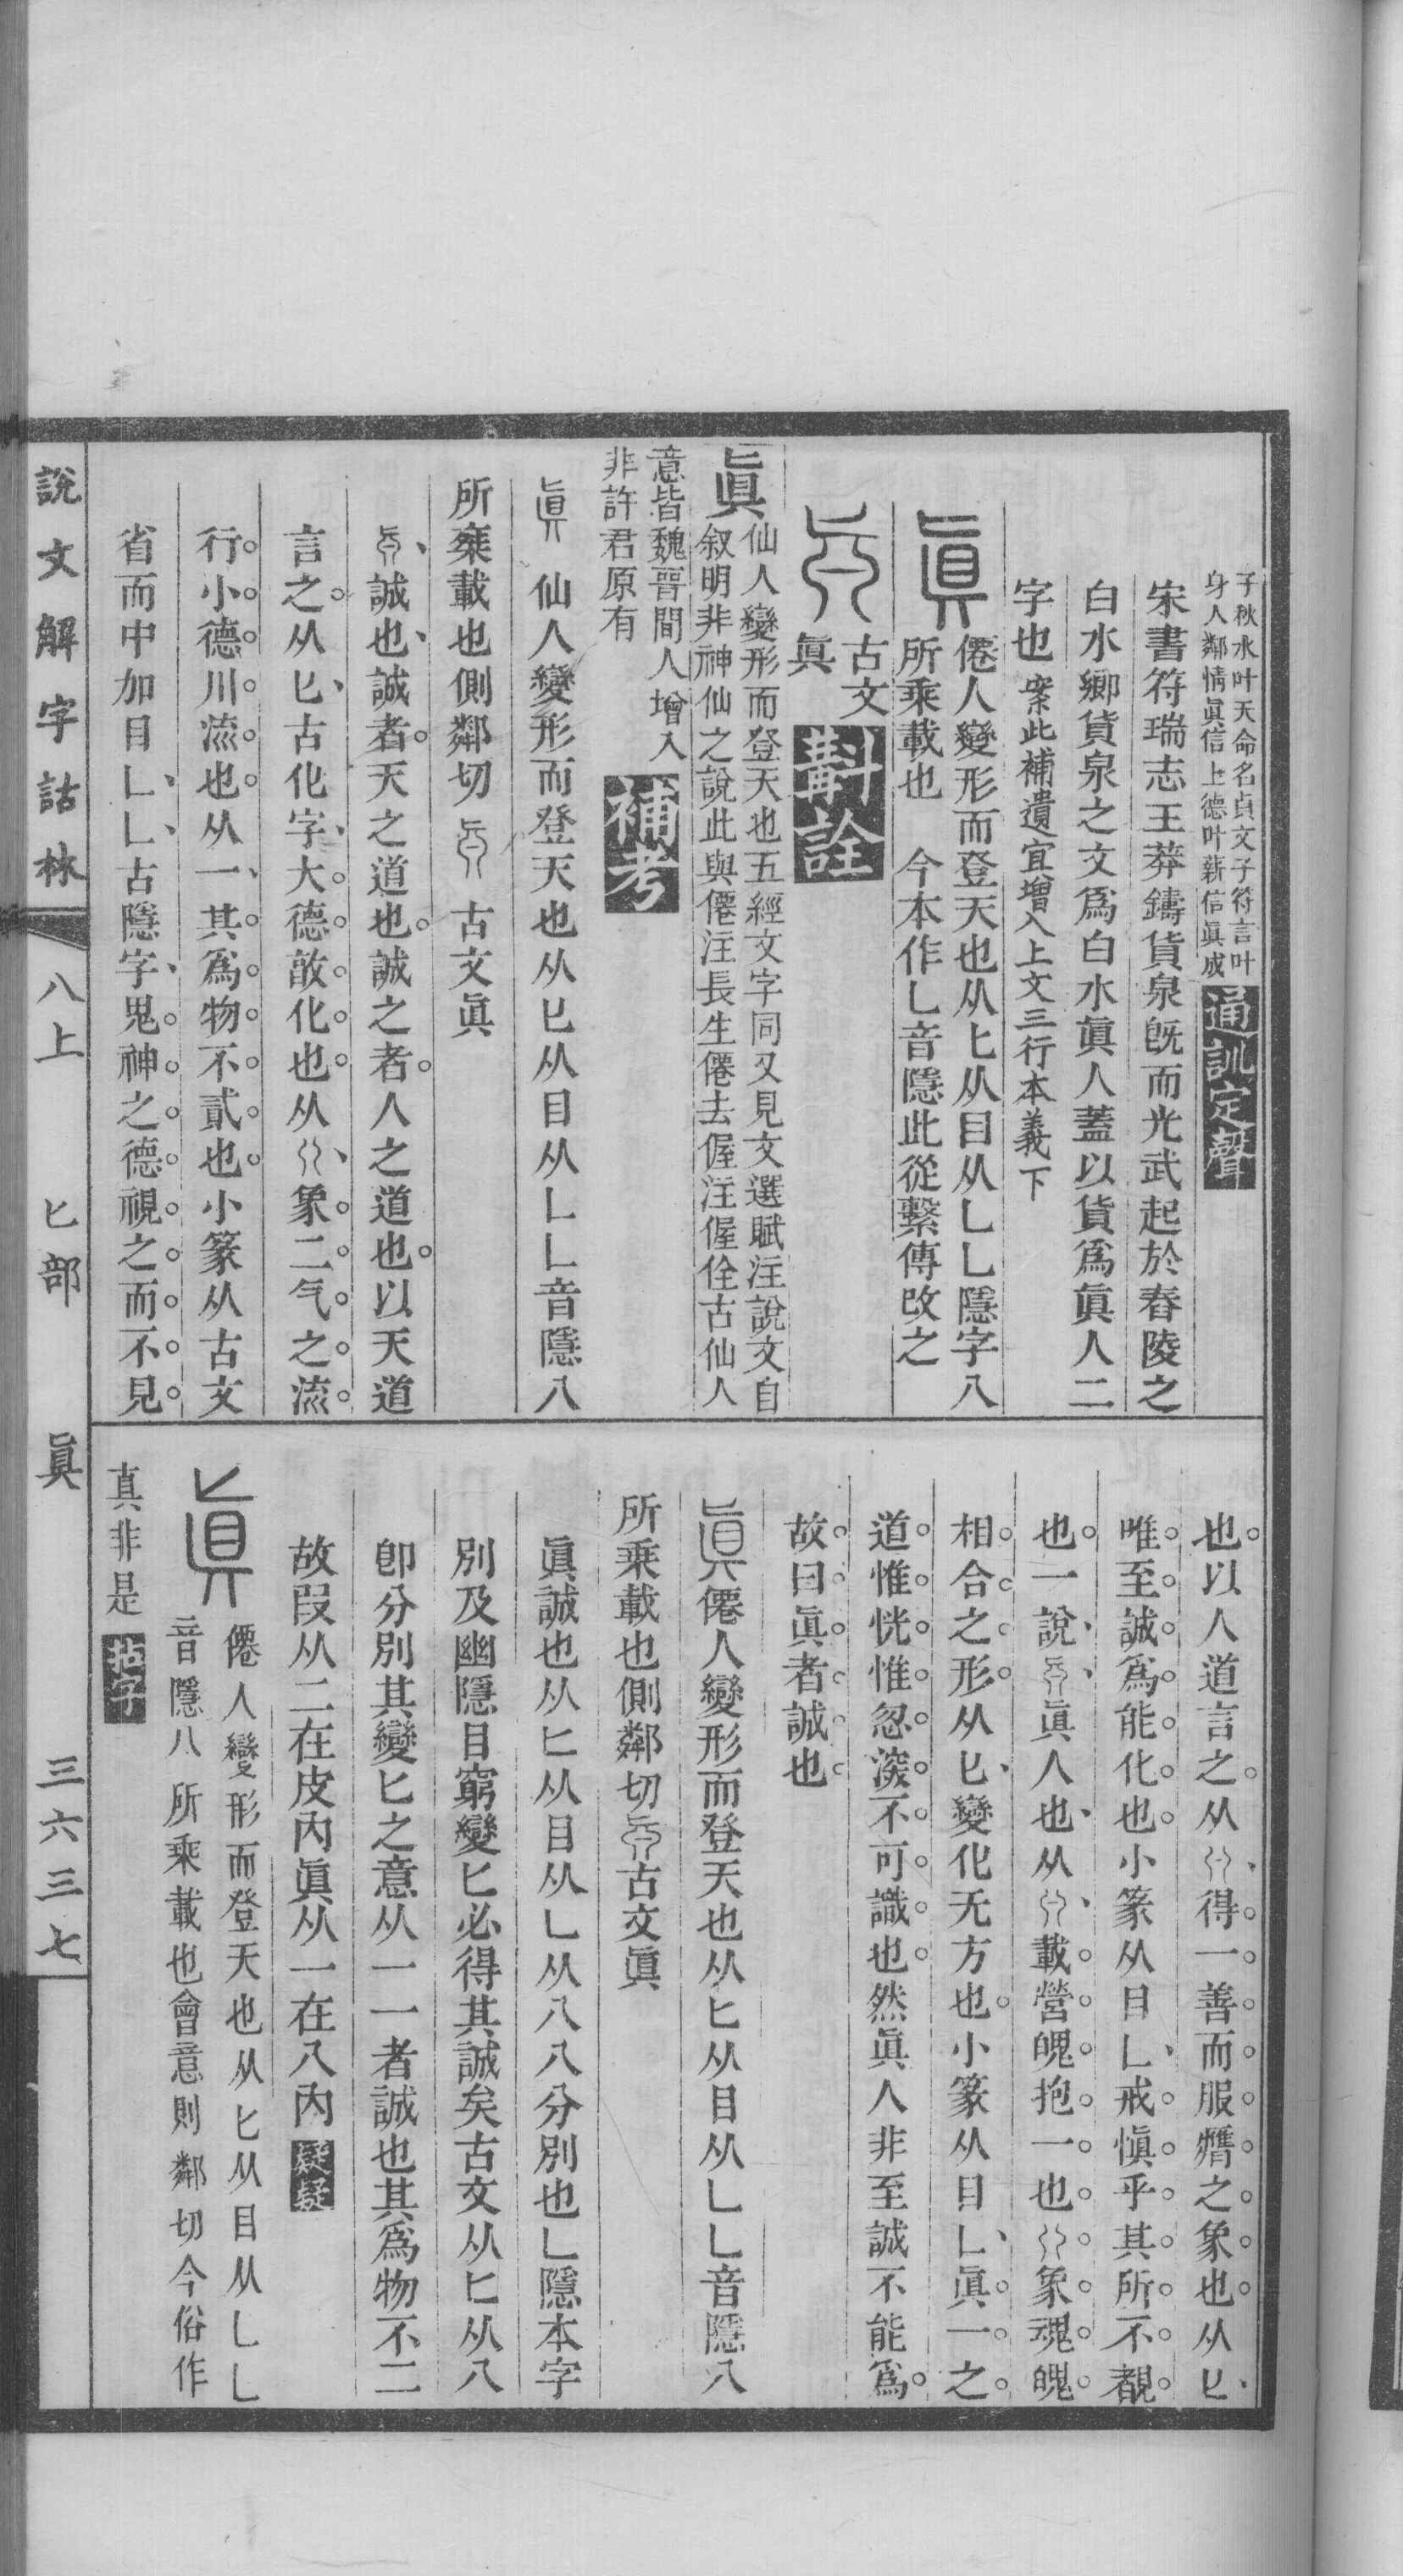 子秋水叶天命名貞文子符言叶
身人鄰情眞信上德叶薪信眞成
通訓定聲
宋書符瑞志王莽鑄貨泉旣而光武起於舂陵之
白水鄉貨泉之文爲白水眞人蓋以貨爲眞人二
字也案此補遺宜增入上文三行本義下
眞
僊人變形而登天也从匕从目从乚乚隱字八
所乘載也　今本作乚音隱此從繫傳改之
古文
眞
斠詮
眞
仙人變形而登天也五經文字同又見文選賦注說文自
叙明非神仙之說此與僊注長生僊去偓注偓佺古仙人
意皆魏晉間人增入
非許君原有
補考
眞　仙人變形而登天也从匕从目从乚乚音隱八
所椉載也側鄰切　古文眞
誠也誠者天之道也誠之者人之道也以天道
言之从匕古化字大德敦化也从象二气之流
行小德川流也从一其爲物不貳也小篆从古文
省而中加目乚乚古隱字鬼神之德視之而不見
也以人道言之从得一善而服膺之象也从匕
唯至誠爲能化也小篆从目乚戒愼乎其所不覩
也一說眞人也从載營魄抱一也象魂魄
相合之形从匕變化无方也小篆从目乚眞一之
道惟恍惟忽深不可識也然眞人非至誠不能爲
故曰眞者誠也
眞僊人變形而登天也从匕从目从乚乚音隱八
所乘載也側鄰切古文眞
眞誠也从匕从目从乚从八八分別也乚隱本字
別及幽隱目窮變匕必得其誠矣古文从匕从八
卽分別其變匕之意从一一者誠也其爲物不二
故叚从二在皮內眞从一在八內
疑疑
眞
僊人變形而登天也从匕从目从乚乚
音隱八所乘載也會意則鄰切今俗作
真非是
說文解字詁林
八上
匕部
眞
三六三七